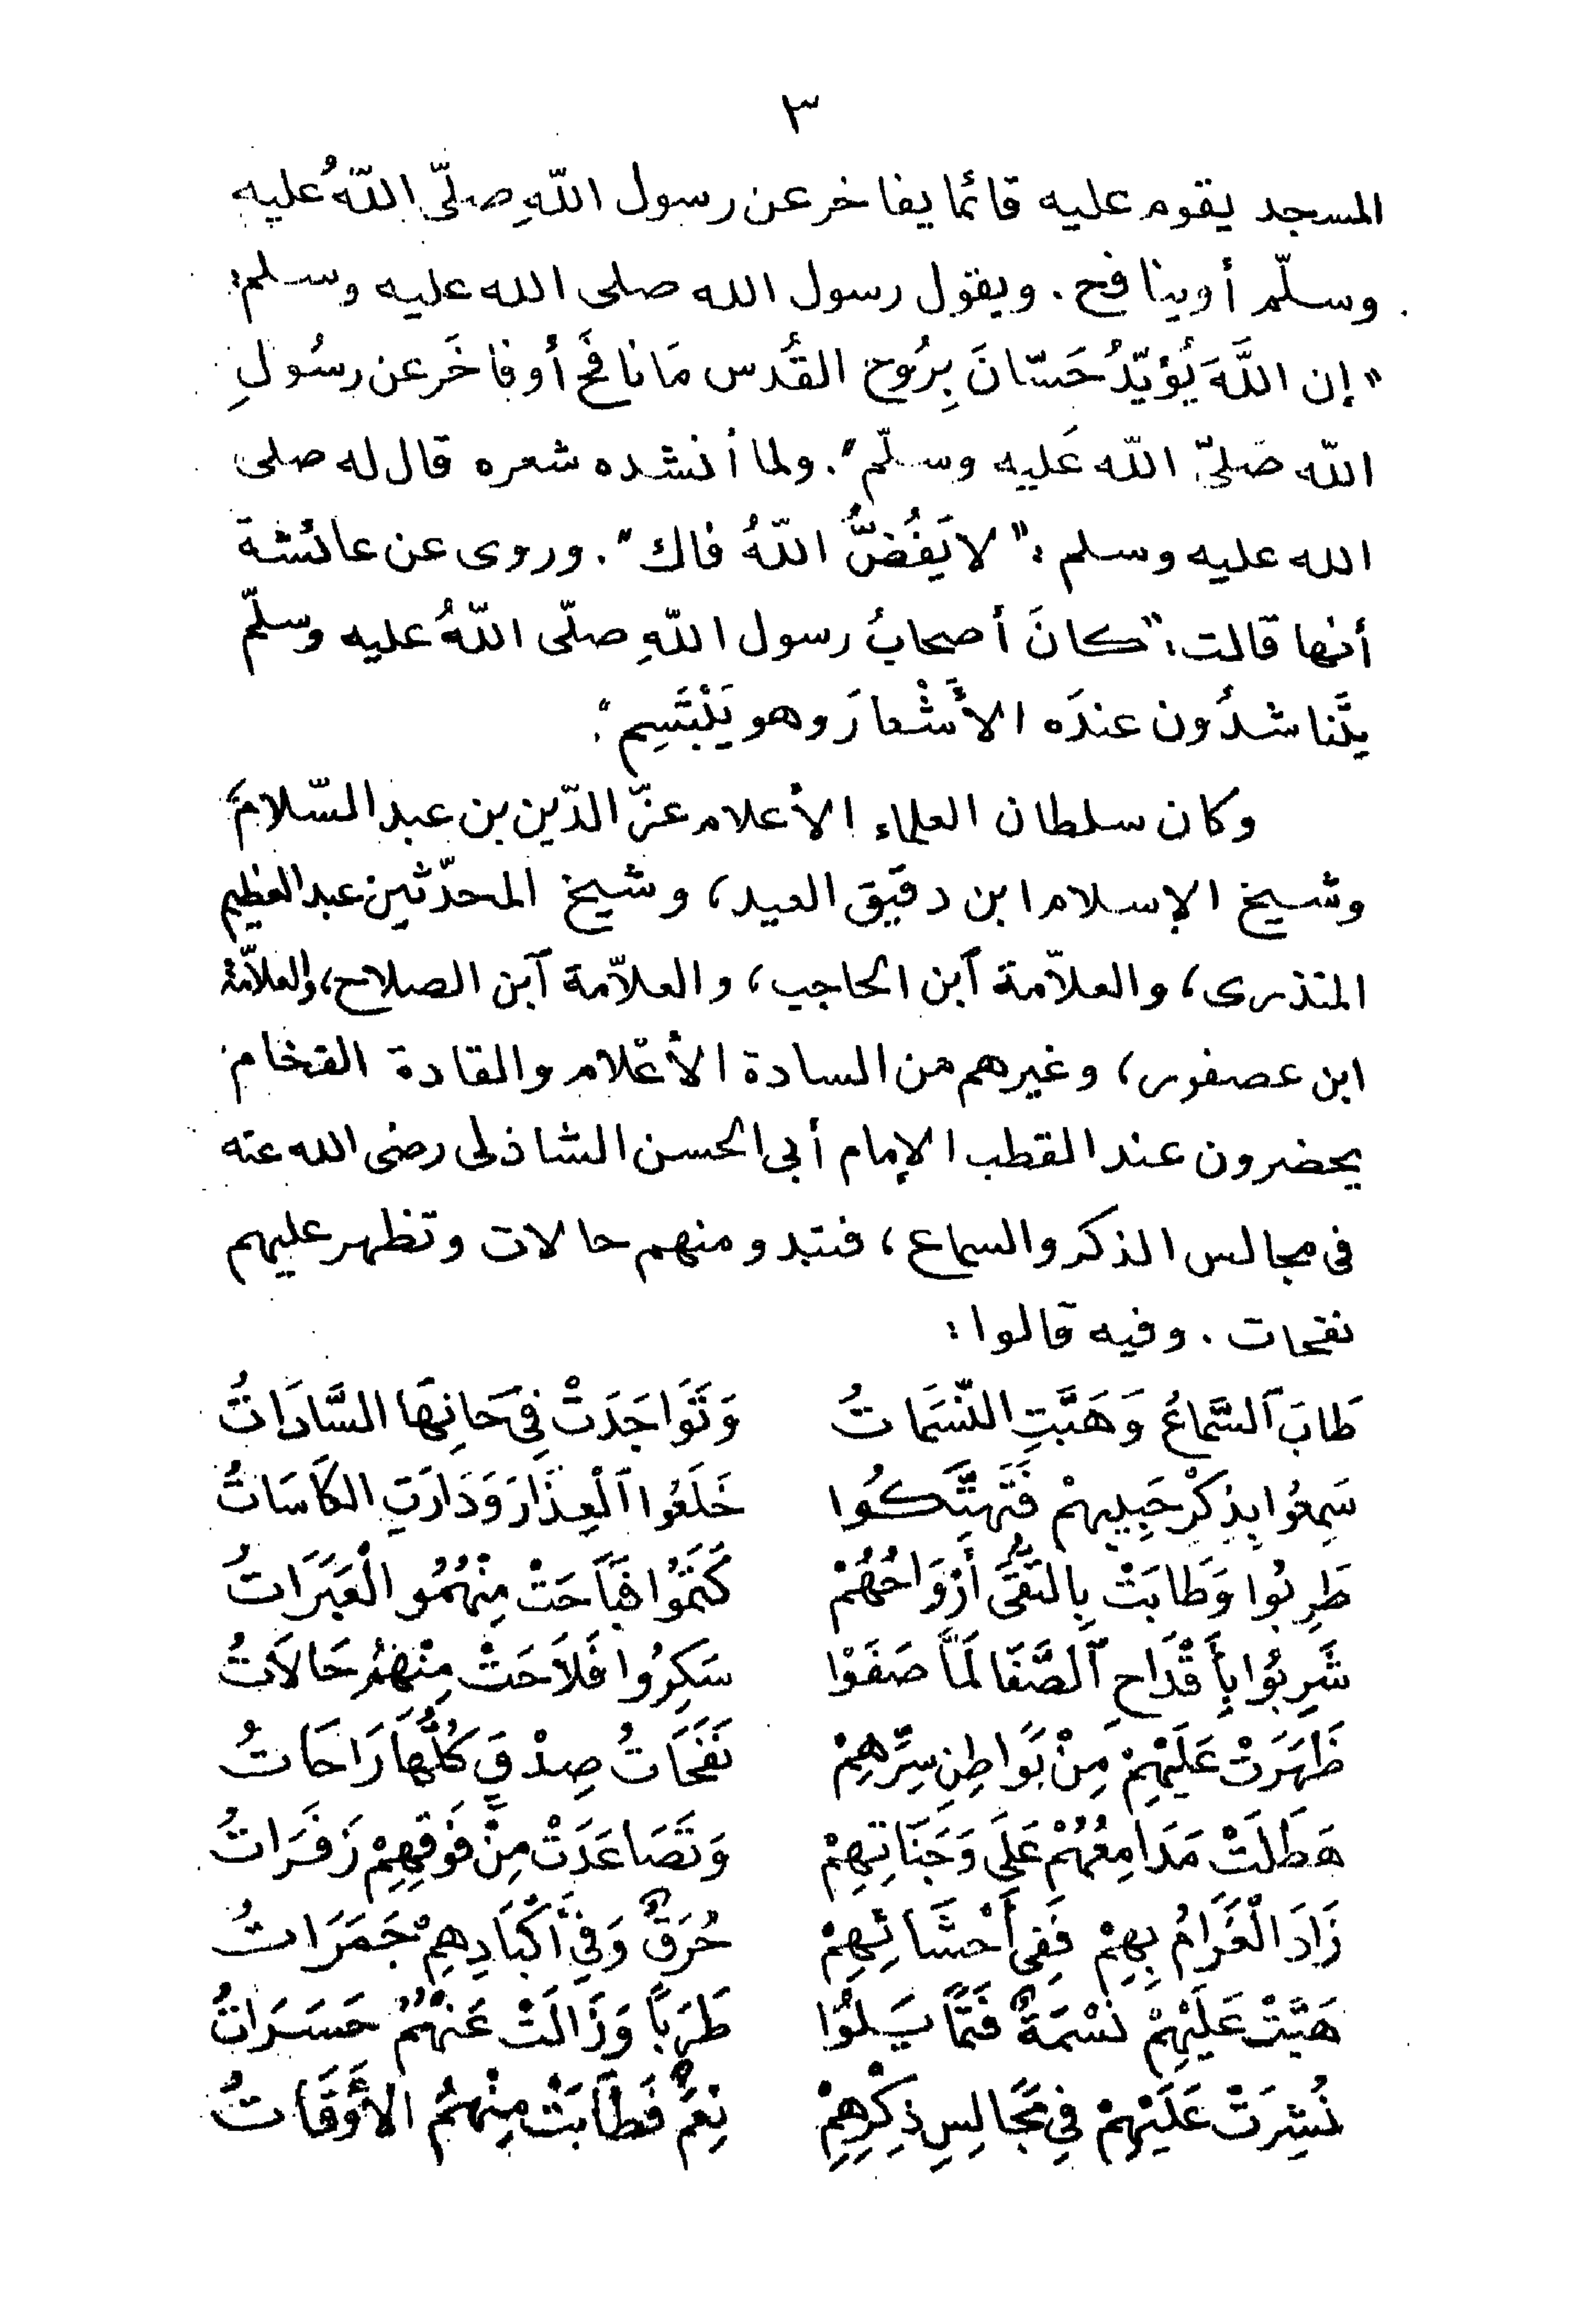 ٣
المسجد يقوم عليه قائما يفاخر عن رسول اللّهِ صلّى اللّهُ عليه
وسلّم أو ينافح . ويقول رسول الله صلى الله عليه وسلم :
" إن اللَّهَ يُؤيّدُ حَسّانَ بِرُوح القُدس مَا نافَحَ أو فاخَر عن رسُولِ
اللّه صَلىّ اللّه عَليه وسلّم " . ولما أنشده شعره قال له صلى
الله عليه وسلم : " لا يَفُضُّ اللّهُ فاك " . وروى عن عائشة
أنها قالت : " كانَ أصحابُ رسول اللّهِ صلّى اللّهُ عليه وسلّم
يتَّناشدُون عندَه الأَشْعارَ وهو يَبْتَسِم " .
وكان سلطان العلماء الأعلام عزّ الدّين بن عبد السّلام،
وشيخ الإسلام ابن دقيق العيد، وشيخ المحدّثين عبد العظيم
المنذرى، والعلاّمة آبن الحاجب، والعلاّمة آبن الصلاح، والعلاّمة
ابن عصفور، وغيرهم من السادة الأعْلام والقادة الفخام
يحضرون عند القطب الإمام أبى الحسن الشاذلى رضى الله عنه
فى مجالس الذكر والسماع، فتبدو منهم حالات وتظهر عليهم
نفحات . وفيه قالوا :
طَابَ ٱلسَّمَاعُ وَهَبَّتِ النّسَمَاتُ وَتَوَاجَدَتْ فِى حَانِهَا السَّادَاتُ
سَمِعُوا بِذِكْرِ حَبِيبِهمْ فَتَهتَّكُوا خَلَعُوا ٱلْعِذَارَ وَدَارَتِ الكَاسَاتُ
طَرِبُوا وَطَابَتْ بِالتُّقَى أَرْوَاحُهُمْ كَتَمُوا فَبَاحَتْ مِنْهُمُو الْعَبَرَاتُ
شَرِبُوا بِأَقْدَاحِ ٱلصَّفَا لَمَّا صَفَوْا سَكِرُوا فَلاَحَتْ مِنْهُمُ حَالاَتُ
ظَهَرَتْ عَلَيْهِمْ مِنْ بَوَاطِنِ سِرِّهِمْ نَفَحَاتُ صِدْقٍ كُلُّهَا رَاحَاتُ
هَطَلَتْ مَدَامِعُهُمْ عَلَى وَجَنَاتِهِمْ وَتَصَاعَدَتْ مِنْ فَوْقِهِمْ زَفَرَاتُ
زَادَ الْغَرَامُ بِهِمْ فَفِى أَحْشَائِهِمْ حُرَقٌ وَفِى أَكْبَادِهِمْ جَمَرَاتُ
هَبَّتْ عَلَيْهِمْ نَسْمَةٌ فَتَمَايَلُوْا طَرَباً وَزَالَتْ عَنْهُمُ حَسَرَاتُ
نُشِرَتْ عَلَيْهِمْ فِى مَجَالِسِ ذِكْرِهِمْ نِعَمٌ فَطَابَتْ مِنْهُمُ الأَوْقَاتُ